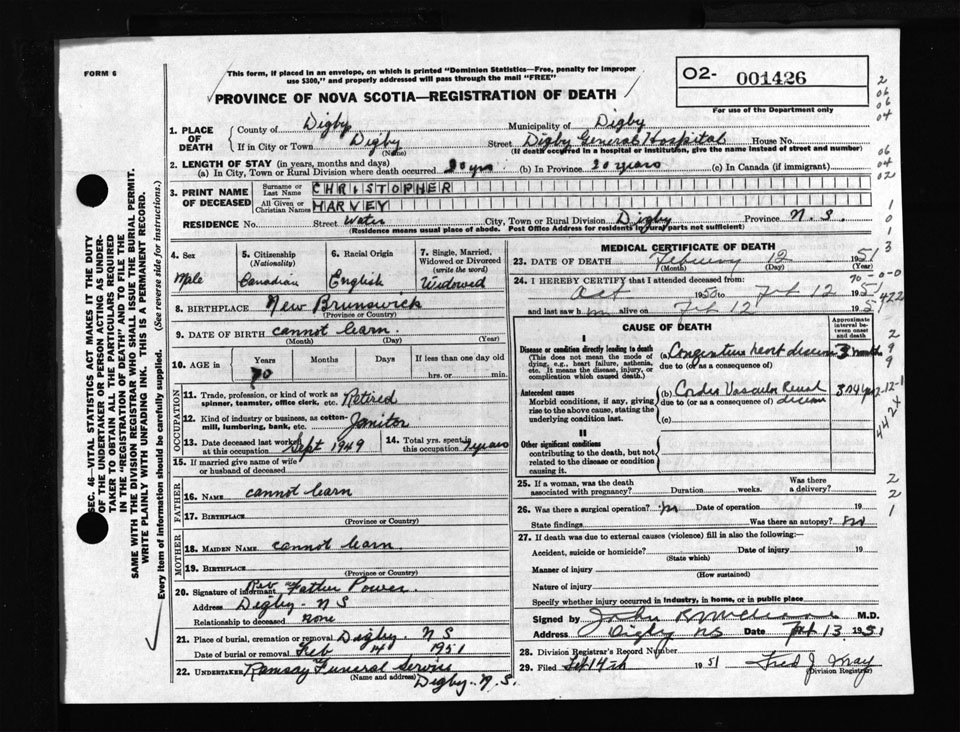 FORM 6
This form, if placed in an envelope, on which is printed "Dominion Statistics—Free, penalty for improper
use $300," and properly addressed will pass through the mail "FREE"
PROVINCE OF NOVA SCOTIA—REGISTRATION OF DEATH
O2- 001426
For use of the Department only
2 06 06 04
1. PLACE OF DEATH
County of Digby Municipality of Digby
If in City or Town Digby Street Digby General Hospital House No.
(Name) (If death occurred in a hospital or institution, give the name instead of street and number)
06 04 02
2. LENGTH OF STAY (in years, months and days)
(a) In City, Town or Rural Division where death occurred 20 yrs (b) In Province 20 years (c) In Canada (if immigrant)
3. PRINT NAME OF DECEASED
Surname or Last Name CHRISTOPHER
All Given or Christian Names HARVEY
RESIDENCE No. Street Water City, Town or Rural Division Digby Province N.S.
(Residence means usual place of abode. Post Office Address for residents in rural parts not sufficient)
SEC. 46—VITAL STATISTICS ACT MAKES IT THE DUTY
OF THE UNDERTAKER OR PERSON ACTING AS UNDER-
TAKER TO OBTAIN ALL THE PARTICULARS REQUIRED
IN THE "REGISTRATION OF DEATH" AND TO FILE THE
SAME WITH THE DIVISION REGISTRAR WHO SHALL ISSUE THE BURIAL PERMIT.
WRITE PLAINLY WITH UNFADING INK. THIS IS A PERMANENT RECORD.
Every item of information should be carefully supplied. (See reverse side for instructions.)
4. Sex
Male
5. Citizenship
(Nationality)
Canadian
6. Racial Origin
English
7. Single, Married,
Widowed or Divorced
(write the word)
Widowed
8. BIRTHPLACE New Brunswick
(Province or Country)
9. DATE OF BIRTH cannot learn.
(Month) (Day) (Year)
10. AGE in Years Months Days If less than one day old
70 hrs. or min.
OCCUPATION
11. Trade, profession, or kind of work as
spinner, teamster, office clerk, etc. Retired
12. Kind of industry or business, as cotton-
mill, lumbering, bank, etc. Janitor
13. Date deceased last worked
at this occupation Sept 1949
14. Total yrs. spent in
this occupation years
15. If married give name of wife
or husband of deceased
FATHER
16. NAME cannot learn
17. BIRTHPLACE
(Province or Country)
MOTHER
18. MAIDEN NAME cannot learn.
19. BIRTHPLACE
(Province or Country)
20. Signature of informant Rev Father Power.
Address Digby. NS
Relationship to deceased none
21. Place of burial, cremation or removal Digby. NS
Date of burial or removal Feb 14 1951
22. UNDERTAKER Ramsay Funeral Service
(Name and address) Digby. N.S.
MEDICAL CERTIFICATE OF DEATH
23. DATE OF DEATH February 12 1951
(Month) (Day) (Year)
24. I HEREBY CERTIFY that I attended deceased from:
Oct 1950 to Feb 12 1951
and last saw him alive on Feb 12 1951
CAUSE OF DEATH
Approximate interval between onset and death
I
Disease or condition directly leading to death
(This does not mean the mode of
dying, e.g., heart failure, asthenia,
etc. It means the disease, injury, or
complication which caused death.)
(a) Congestive heart disease 3 months
due to (or as a consequence of)
Antecedent causes
Morbid conditions, if any, giving
rise to the above cause, stating the
underlying condition last.
(b) Cardio Vascular Renal disease
due to (or as a consequence of)
(c)
II
Other significant conditions
contributing to the death, but not
related to the disease or condition
causing it.
25. If a woman, was the death
associated with pregnancy? Duration weeks. Was there
a delivery?
26. Was there a surgical operation? no Date of operation 19
State findings Was there an autopsy? no
27. If death was due to external causes (violence) fill in also the following:—
Accident, suicide or homicide? Date of injury 19
(State which)
Manner of injury
(How sustained)
Nature of injury
Specify whether injury occurred in industry, in home, or in public place
Signed by John R M.D.
Address Digby NS Date Feb 13 1951
28. Division Registrar's Record Number
29. Filed Feb 14th 1951 Fred J. May
(Division Registrar)